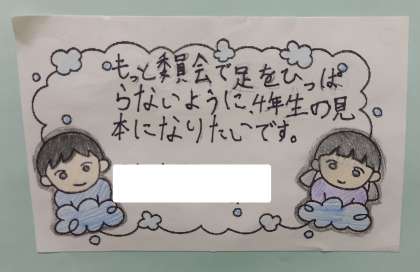 もっと委員会で足をひっぱ
らないように、4年生の見
本になりたいです。